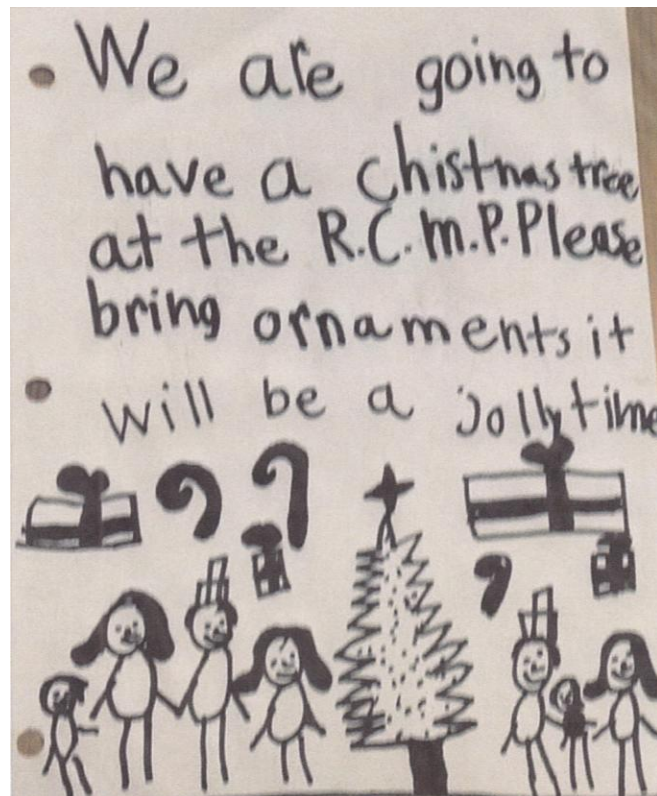 We are going to
have a chistnas tree
at the R.C.M.P. Please
bring ornaments it
will be a jolly time